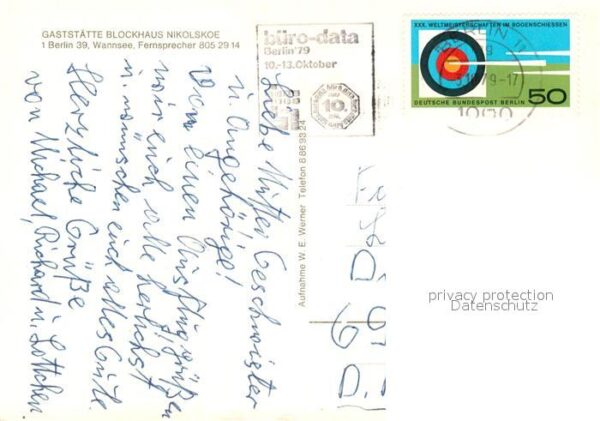 GASTSTÄTTE BLOCKHAUS NIKOLSKOE
1 Berlin 39, Wannsee, Fernsprecher 805 29 14
büro-data
Berlin '79
10.-13. Oktober
10.
BERLIN 11
79-17
1000
XXX. WELTMEISTERSCHAFTEN IM BOGENSCHIESSEN
DEUTSCHE BUNDESPOST BERLIN
50
Liebe Mutter Geschwister
u. Angehörige!
Von einen Ausflug grüßen
wir euch alle herzlichst
u. wünschen euch alles Gute
Herzliche Grüße
von Michael, Richard u. Lottchen
Aufnahme W. E. Werner Telefon 8 86 93 24
D. 6
privacy protection
Datenschutz